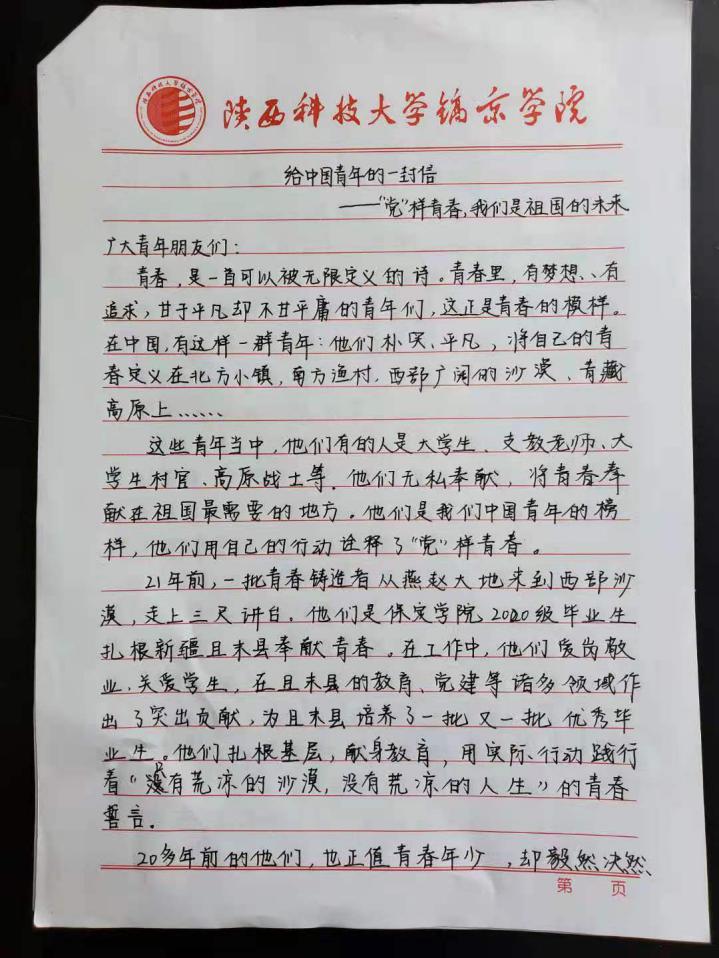 陕西科技大学镐京学院
给中国青年的一封信
——“党”样青春,我们是祖国的未来
广大青年朋友们:
青春,是一首可以被无限定义的诗。青春里,有梦想、有
追求,甘于平凡却不甘平庸的青年们,这正是青春的模样。
在中国,有这样一群青年:他们朴实、平凡,将自己的青
春定义在北方小镇,南方渔村、西部广阔的沙漠、青藏
高原上……
这些青年当中,他们有的人是大学生、支教老师、大
学生村官、高原战士等。他们无私奉献,将青春奉
献在祖国最需要的地方。他们是我们中国青年的榜
样,他们用自己的行动诠释了“党”样青春。
21年前,一批青春铸造者从燕赵大地来到西部沙
漠,走上三尺讲台。他们是保定学院2000级毕业生
扎根新疆且末县奉献青春。在工作中,他们爱岗敬
业、关爱学生,在且末县的教育、党建等诸多领域作
出了突出贡献,为且末县培养了一批又一批优秀毕
业生。他们扎根基层,献身教育,用实际行动践行
着“只有荒凉的沙漠,没有荒凉的人生”的青春
誓言。
20多年前的他们,也正值青春年少,却毅然决然
第 页